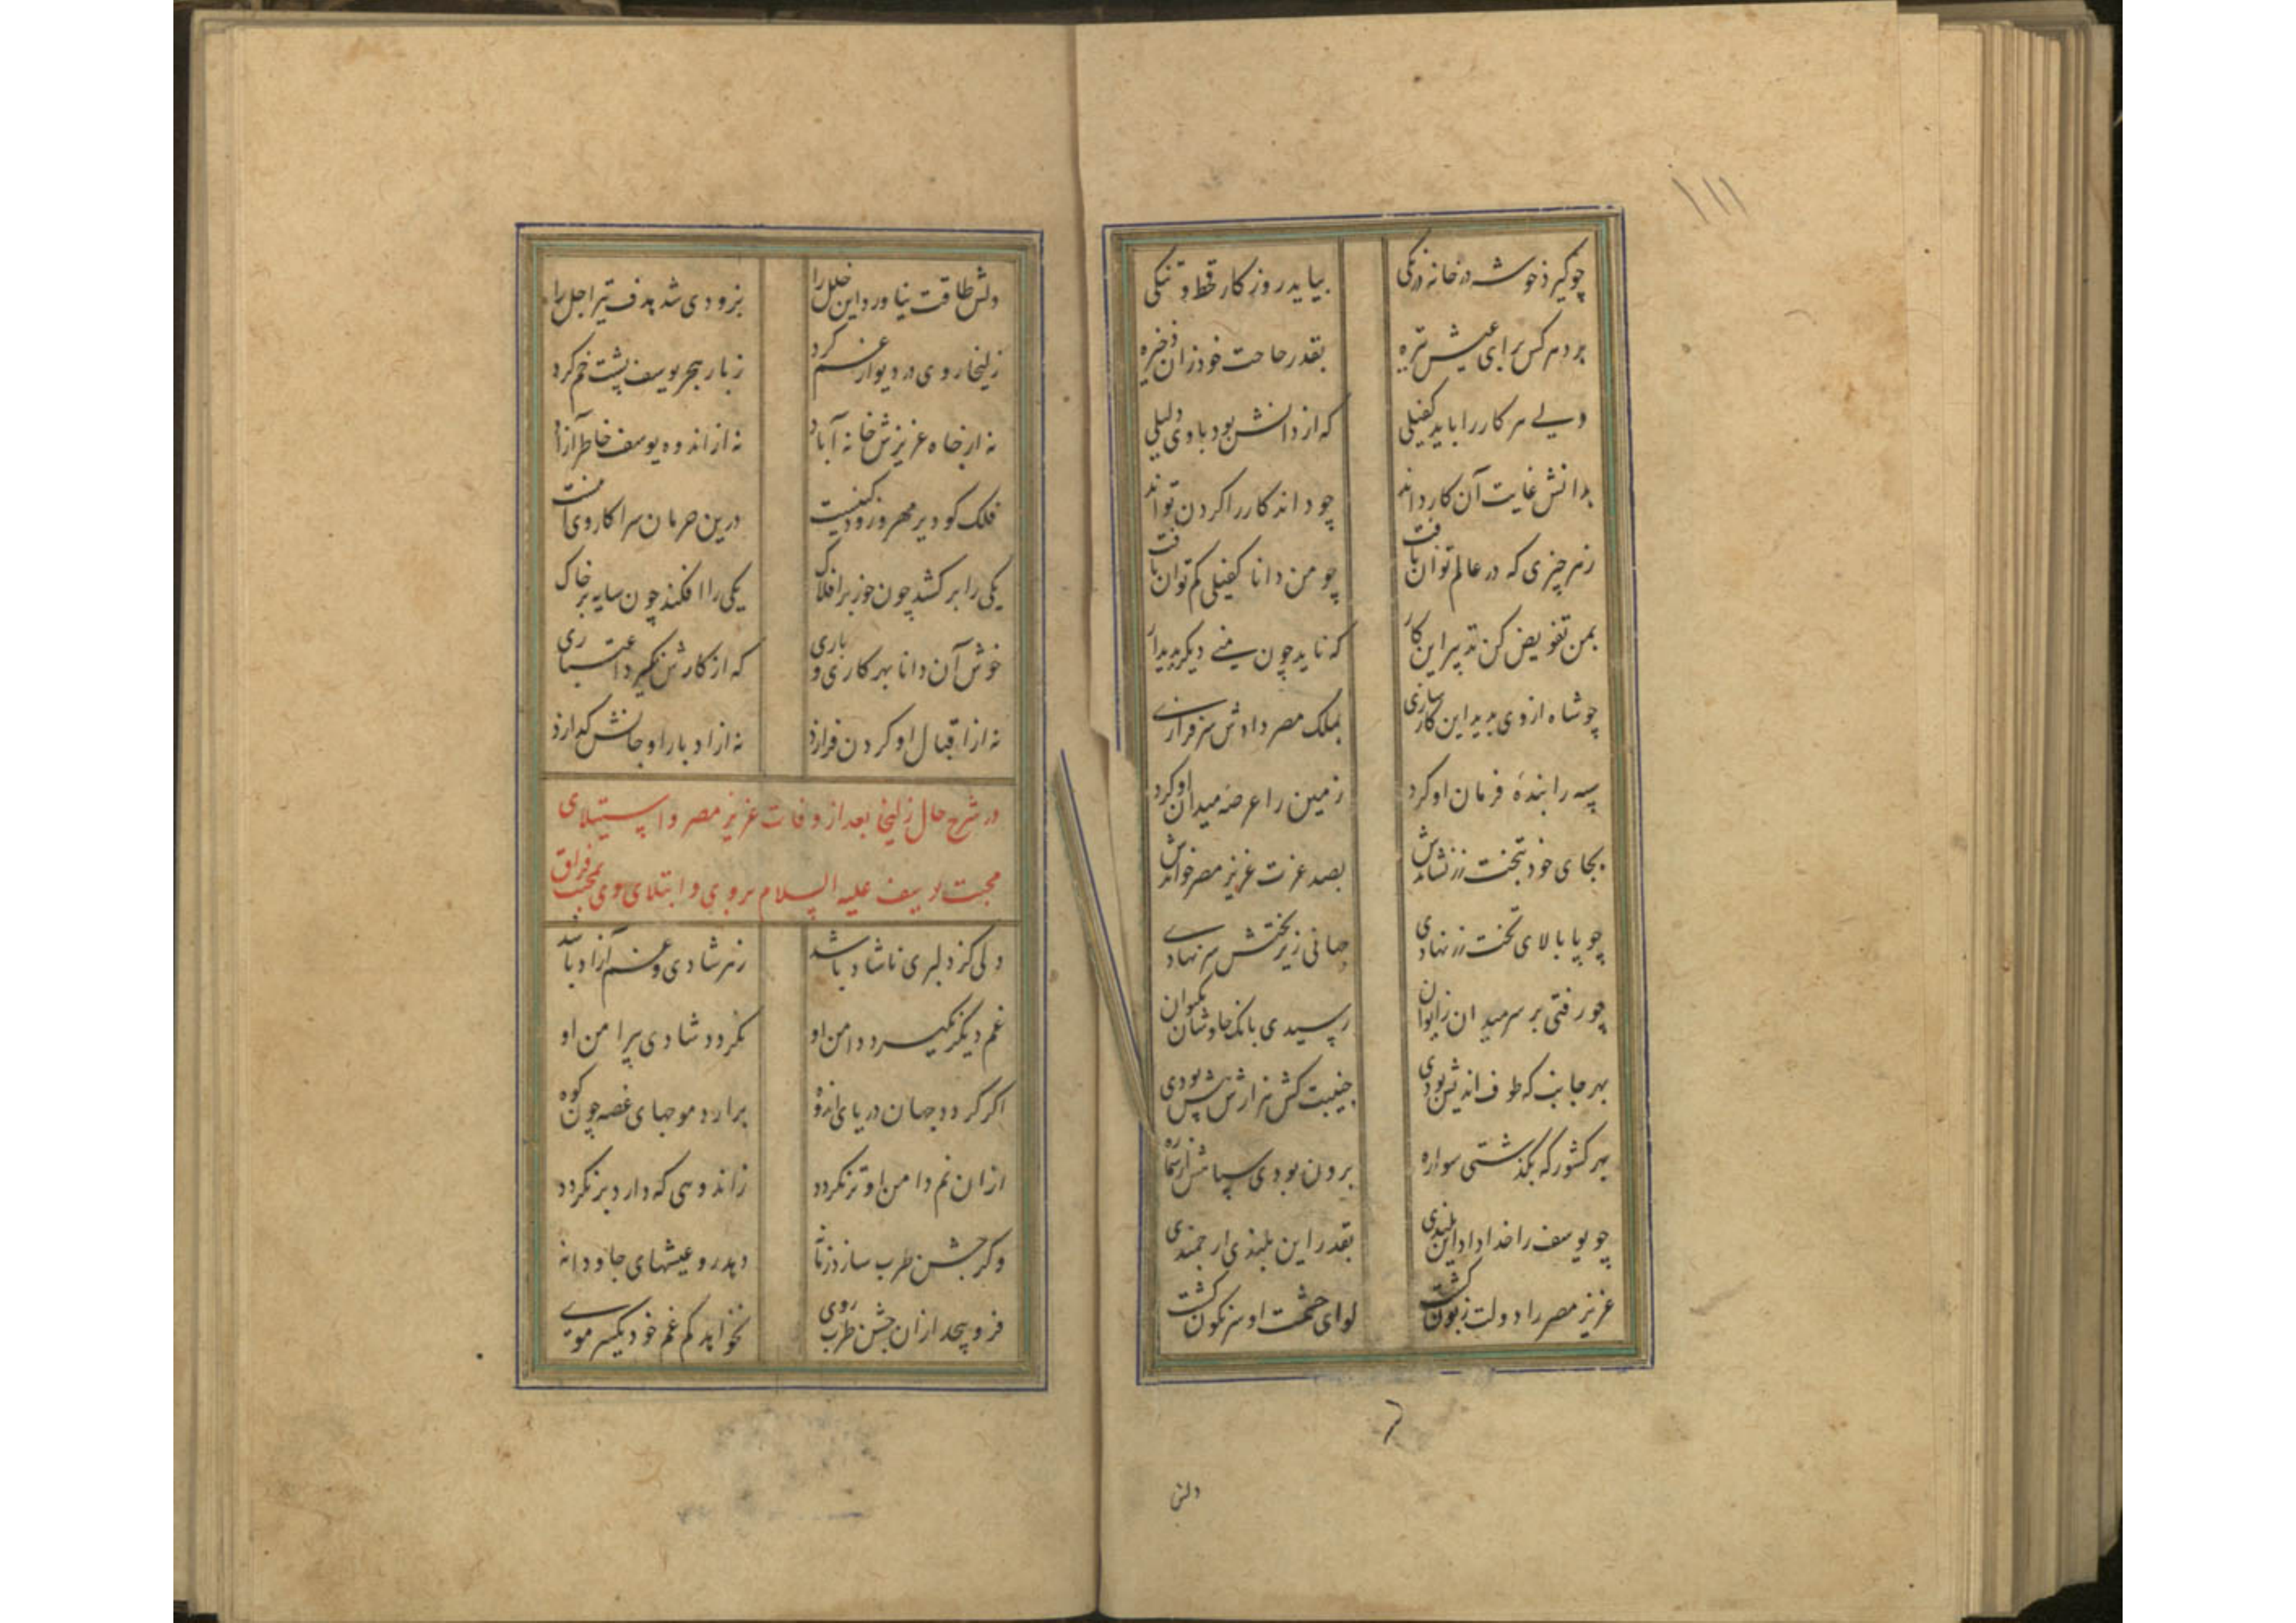 ۱۱۱
چو گیرد خوشه در خانه درنگی بیاید روزکار قحط و تنگی
برد هر کس برای عیش تیره بقدر حاجت خود زان ذخیره
ولی هر کار را باید کفیلی که از دانش بود با وی دلیلی
بدانش غایت آن کار داند چو داند کار را کردن تواند
ز هر چیزی که در عالم توان یافت چو من دانا کفیلی کم توان یافت
بمن تفویض کن تدبیر این کار که ناید چون منی دیگر پدیدار
چو شاه از وی بدید این کارسازی بملک مصر دادش سرفرازی
سپه را بندهٔ فرمان او کرد زمین را عرصه میدان او کرد
بجای خود بتخت زر نشاندش بصد عزت عزیز مصر خواندش
چو پا بالای تخت زر نهادی جهانی زیر تختش سر نهادی
چو رفتی بر سر میدان ز ایوان رسیدی بانک چاوشان بکیوان
بهر جانب که طوف اندیش بودی جنیبت کش هزارش پیش بودی
بهر کشور که بگذشتی سواره برون بودی سپاهش از شماره
چو یوسف را خدا داد این بلندی بقدر این بلندی ارجمندی
عزیز مصر را دولت زبون کشت لوای حشمت او سرنکون کشت
دلش
دلش طاقت نیاورد این خلل را بزودی شد هدف تیر اجل را
زلیخا روی در دیوار غم کرد ز بار هجر یوسف پشت خم کرد
نه از جاه عزیزش خانه آباد نه از اندوه یوسف خاطر آزاد
فلک کو دیر مهر و زود کینست درین حرمان سرا کار وی اینست
یکی را برکشد چون خور بر افلاک یکی را افکند چون سایه بر خاک
خوش آن دانا بهر کاری و باری که از کارش نگیرد اعتباری
نه از اقبال او کردن فرازد نه از ادبار او جانش کدازد
در شرح حال زلیخا بعد از وفات عزیز مصر و استیلای
محبت یوسف علیه السلام بر وی و ابتلای وی بمحنت فراق
دلی کز دلبری ناشاد باشد ز هر شادی و غم آزاد باشد
غم دیگر نگیرد دامن او نکردد شادی پیرامن او
اکر کردد جهان دریای اندوه برارد موجهای غصه چون کوه
ازان نم دامن او تر نکردد ز اندوهی که دارد بر نکردد
وکر جشن طرب سازد زمانه دهد رو عیشهای جاودانه
فرو پیچد ازان جشن طرب روی نخواهد کم غم خود یکسر موی